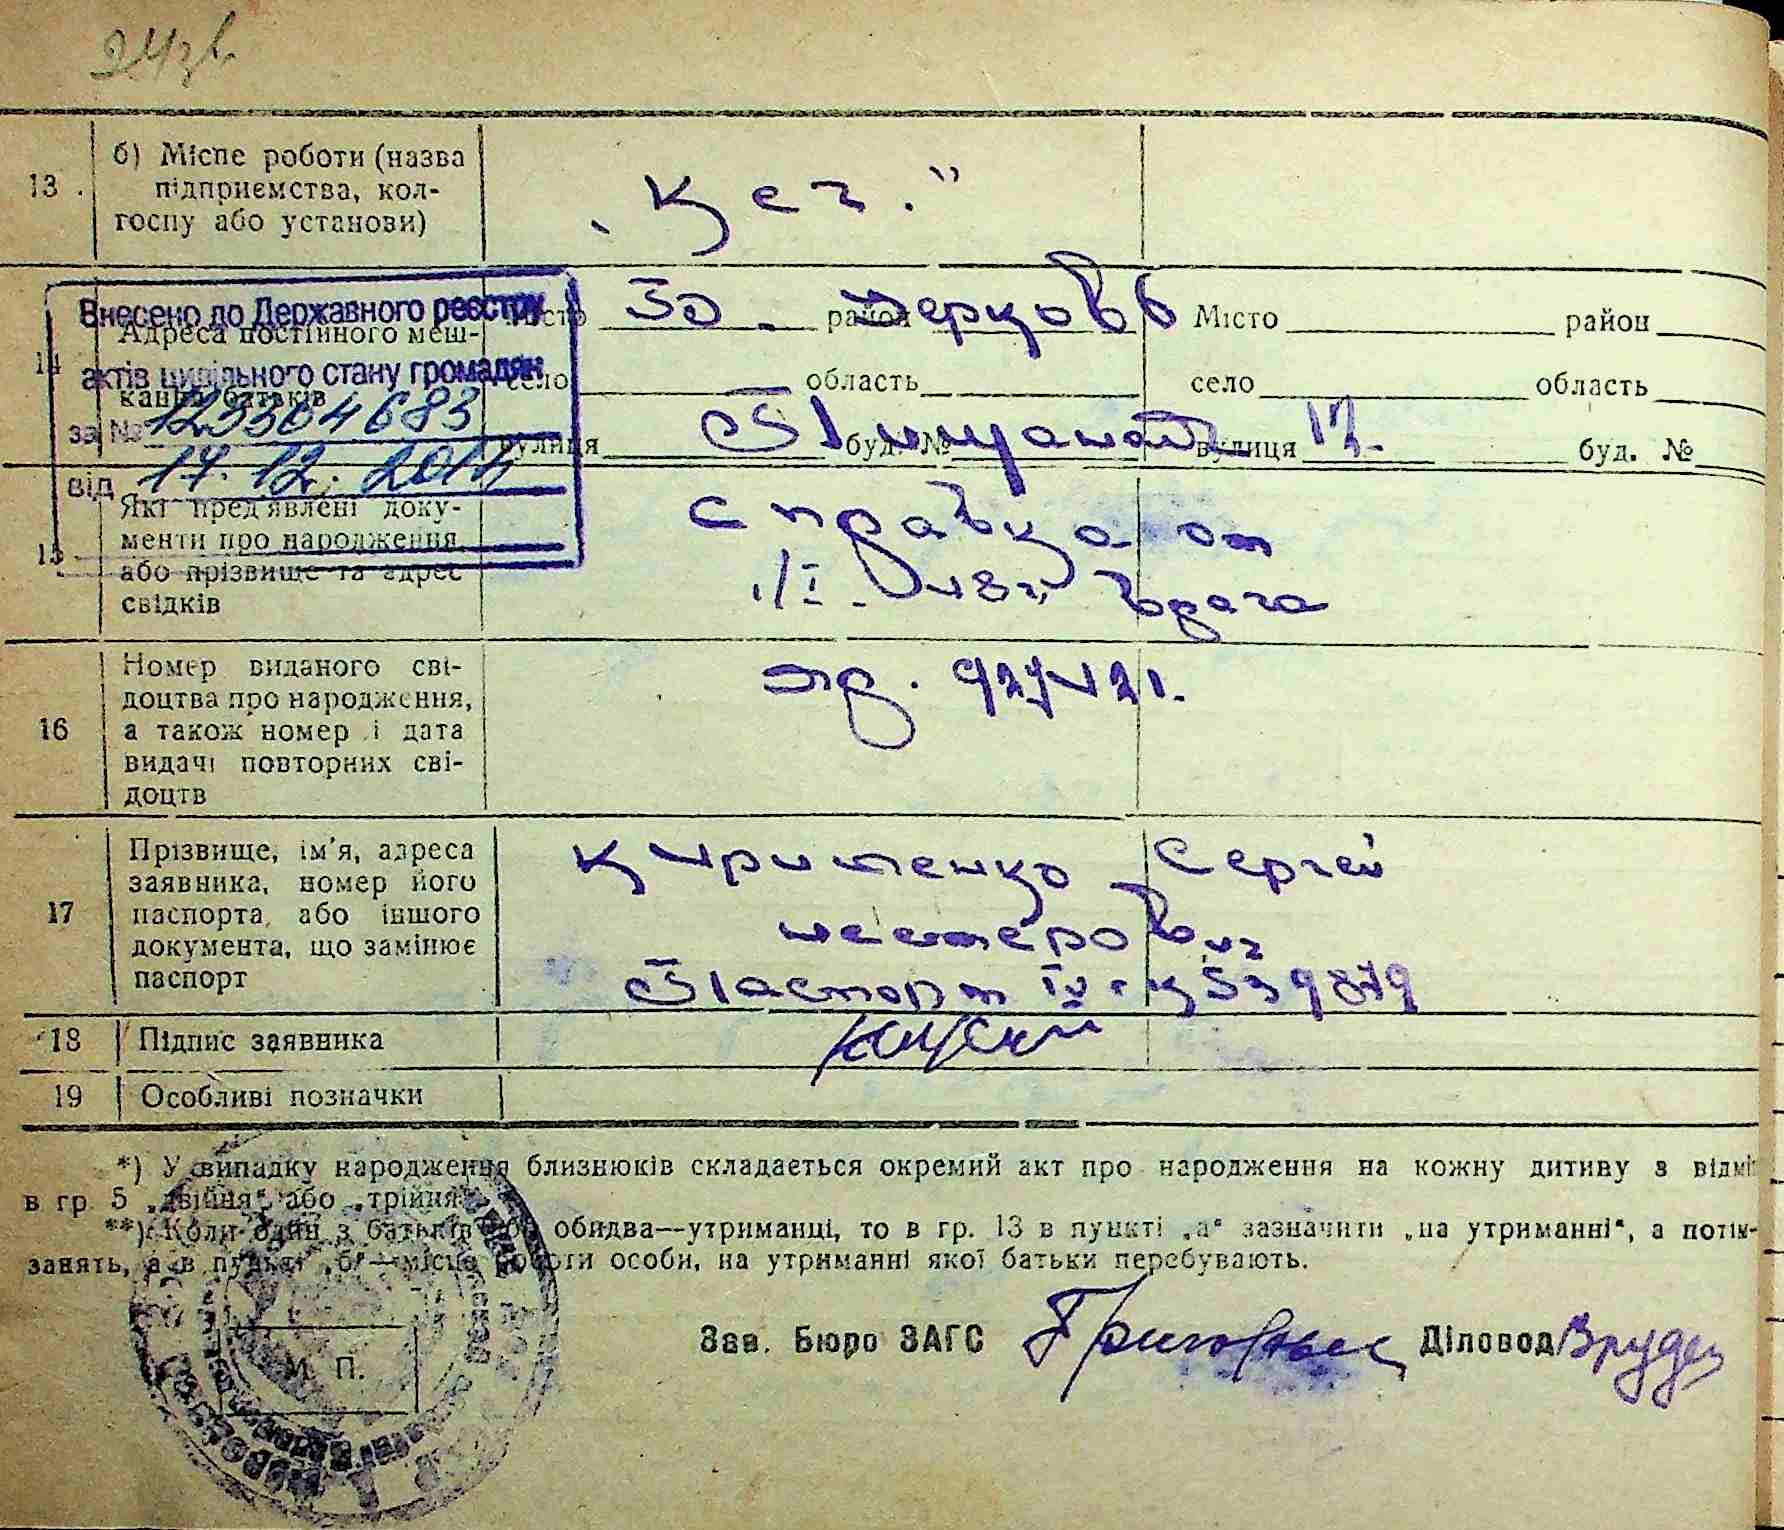 24зв
13
б) Місце роботи (назва
підприємства, кол-
госпу або установи)
„Кеч."
14
Адреса постійного меш-
кання батьків
місто 30. район Черково Місто район
село область село область
вулиця буд. № вулиця 12. буд. №
Внесено до Державного реєстру
актів цивільного стану громадян
за № 123304683
від 17.12.2014
15
Які пред'явлені доку-
менти про народження
або прізвище та адрес
свідків
Справка от
1/I. 48г. врача
16
Номер виданого сві-
доцтва про народження,
а також номер і дата
видачі повторних сві-
доцтв
17
Прізвище, ім'я, адреса
заявника, номер його
паспорта, або іншого
документа, що замінює
паспорт
Кириленко Сергей
Нестерович
Паспорт IV ЯК 539879
18
Підпис заявника
19
Особливі позначки
*) У випадку народження близнюків складається окремий акт про народження на кожну дитину з відміт
в гр. 5 „двійня" або „трійня".
**) Коли один з батьків або обидва—утриманці, то в гр. 13 в пункті „а" зазначити „на утриманні", а потім-
занять, а в пункті „б"—місце роботи особи, на утриманні якої батьки перебувають.
Зав. Бюро ЗАГС Діловод
М. П.